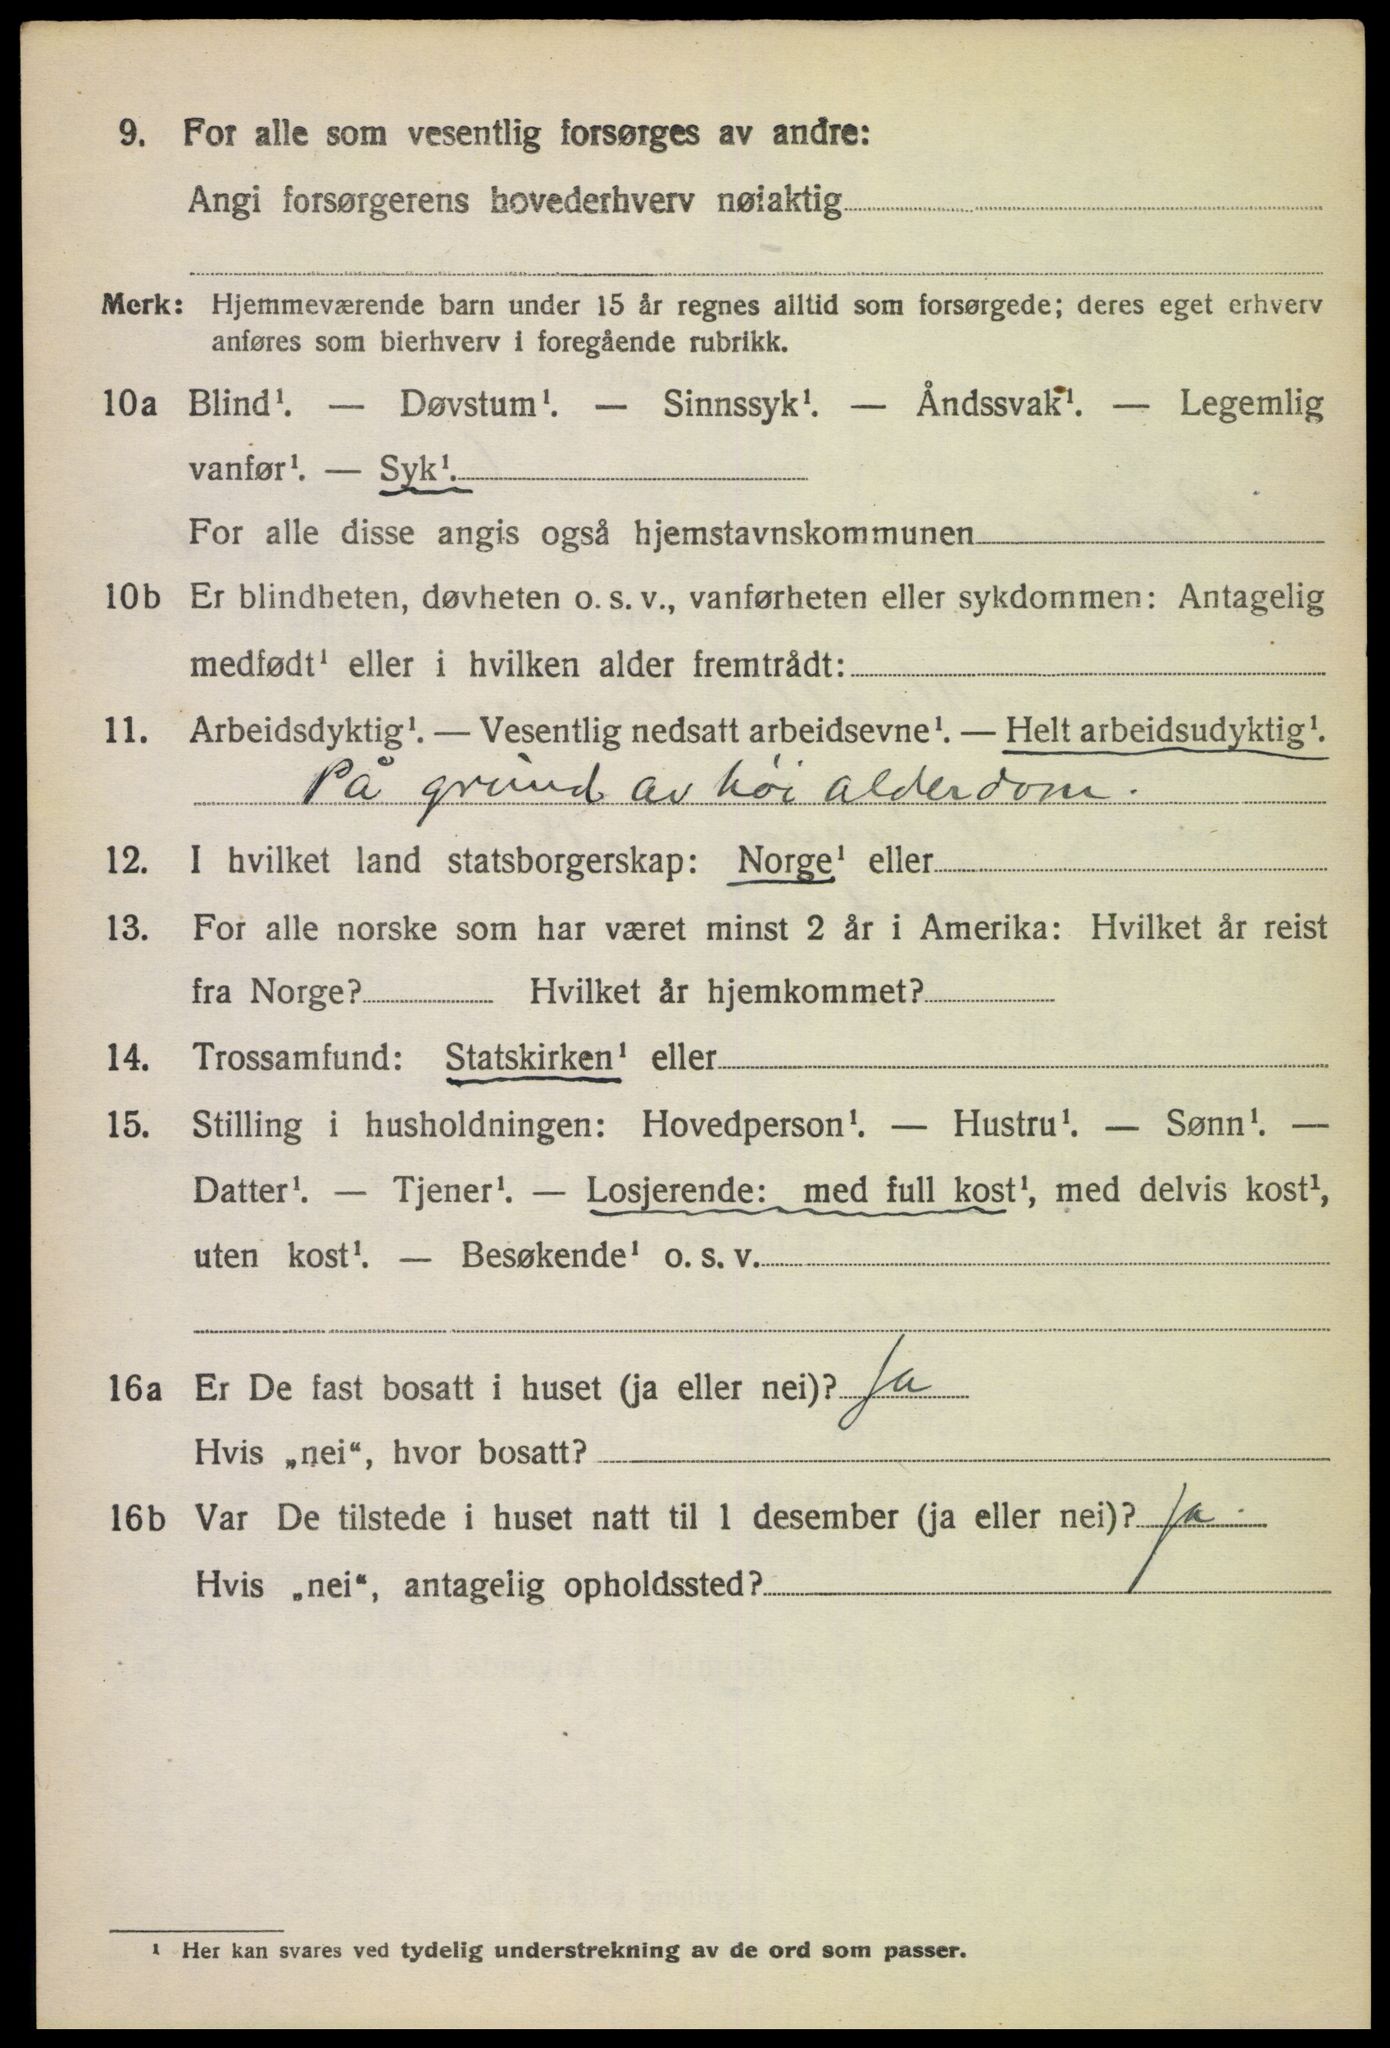 9. For alle som vesentlig forsørges av andre:
Angi forsørgerens hovederhverv nøiaktig
Merk: Hjemmeværende barn under 15 år regnes alltid som forsørgede; deres eget erhverv
anføres som bierhverv i foregående rubrikk.
10a Blind¹. — Døvstum¹. — Sinnssyk¹. — Åndssvak¹. — Legemlig
vanfør¹. — Syk¹.
For alle disse angis også hjemstavnskommunen
10b Er blindheten, døvheten o. s. v., vanførheten eller sykdommen: Antagelig
medfødt¹ eller i hvilken alder fremtrådt:
11. Arbeidsdyktig¹. — Vesentlig nedsatt arbeidsevne¹. — Helt arbeidsudyktig¹.
På grund av høi alderdom.
12. I hvilket land statsborgerskap: Norge¹ eller
13. For alle norske som har været minst 2 år i Amerika: Hvilket år reist
fra Norge? Hvilket år hjemkommet?
14. Trossamfund: Statskirken¹ eller
15. Stilling i husholdningen: Hovedperson¹. — Hustru¹. — Sønn¹. —
Datter¹. — Tjener¹. — Losjerende: med full kost¹, med delvis kost¹,
uten kost¹. — Besøkende¹ o. s. v.
16a Er De fast bosatt i huset (ja eller nei)? Ja
Hvis „nei“, hvor bosatt?
16b Var De tilstede i huset natt til 1 desember (ja eller nei)? Ja.
Hvis „nei“, antagelig opholdssted?
¹ Her kan svares ved tydelig understrekning av de ord som passer.